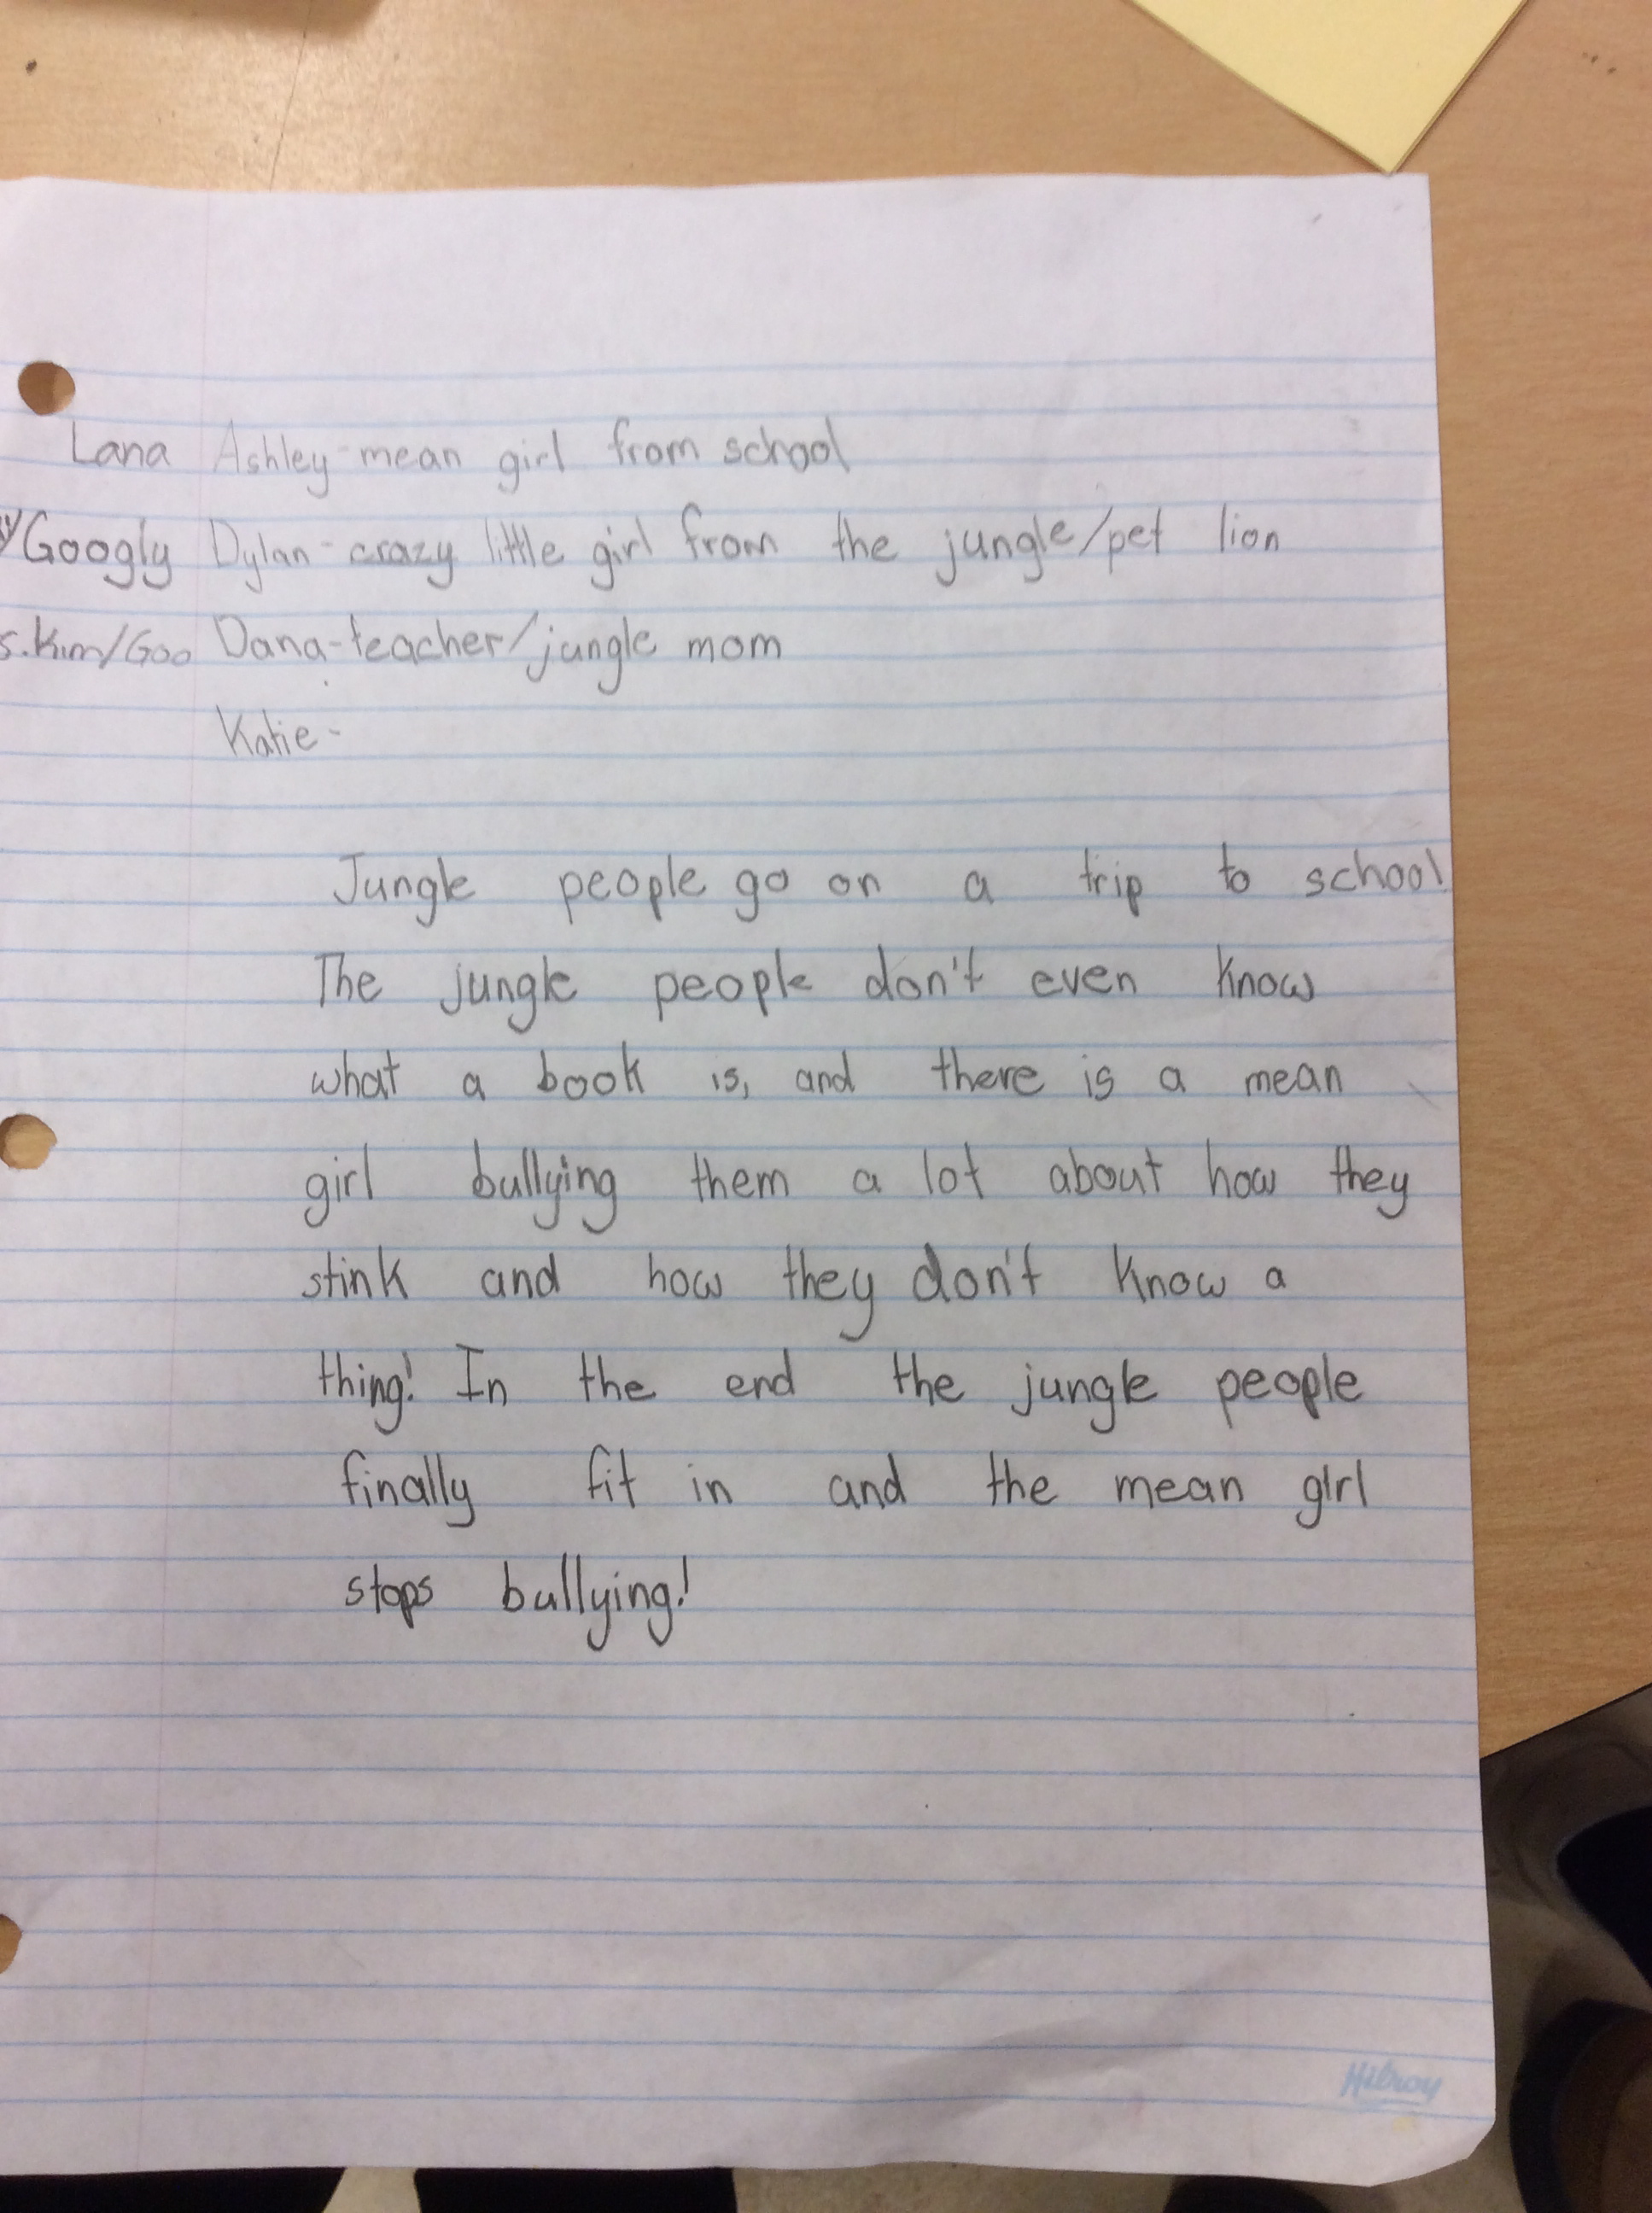 Lana Ashley-mean girl from school
y/Googly Dylan-crazy little girl from the jungle/pet lion
s.Kim/Goo Dana-teacher/jungle mom
Katie-
Jungle people go on a trip to school.
The jungle people don't even know
what a book is, and there is a mean
girl bullying them a lot about how they
stink and how they don't know a
thing! In the end the jungle people
finally fit in and the mean girl
stops bullying!
Hilroy